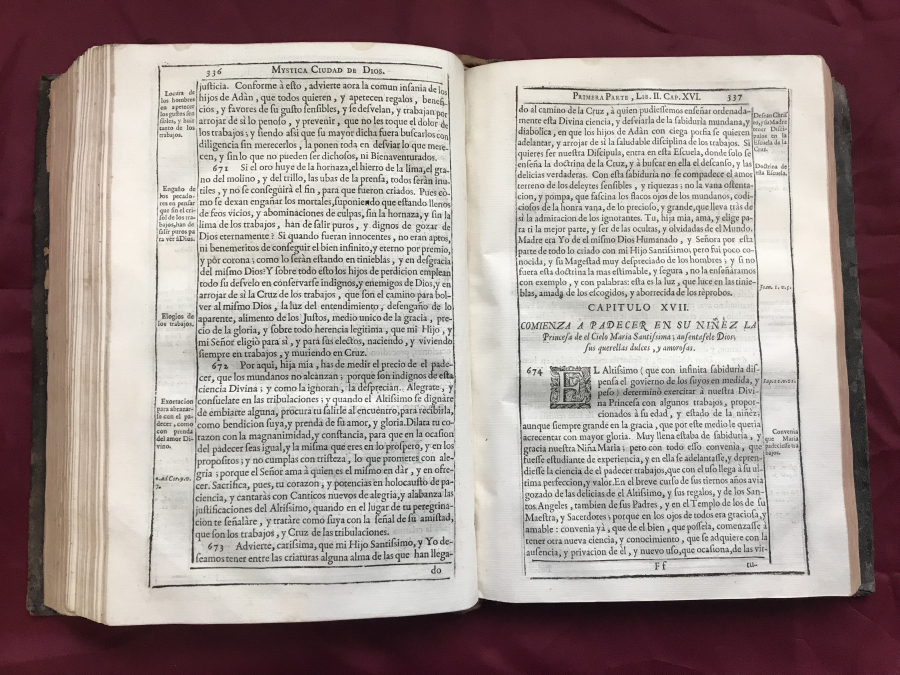 336
MYSTICA CIUDAD DE DIOS.
Locura de
los hombres
en apetecer
los gustos sen
sibles, y huir
tanto de los
trabajos.
justicia. Conforme à esto, advierte aora la comun insania de los
hijos de Adàn, que todos quieren, y apetecen regalos, benefi-
cios, y favores de su gusto sensibles, y se desvelan, y trabajan por
arrojar de si lo penoso, y prevenir, que no les toque el dolor de
los trabajos; y siendo assi que su mayor dicha fuera buscarlos con
diligencia sin merecerlos, la ponen toda en desviar lo que mere-
cen, y sin lo que no pueden ser dichosos, ni Bienaventurados.
Engaño de
los pecado-
res en pensar
que sin el cri
sol de los tra
bajos, han de
salir puros pa
ra ver à Dios.
671 Si el oro huye de la hornaza, el hierro de la lima, el gra-
no del molino, y del trillo, las ubas de la prensa, todos serán inu-
tiles, y no se conseguirà el fin, para que fueron criados. Pues cò-
mo se dexan engañar los mortales, suponiendo que estando llenos
de feos vicios, y abominaciones de culpas, sin la hornaza, y sin la
lima de los trabajos, han de salir puros, y dignos de gozar de
Dios eternamente? Si quando fueran innocentes, no eran aptos,
ni benemeritos de conseguir el bien infinito, y eterno por premio,
y por corona; como lo serán estando en tinieblas, y en desgracia
del mismo Dios? Y sobre todo esto los hijos de perdicion emplean
todo su desvelo en conservarse indignos, y enemigos de Dios, y en
arrojar de si la Cruz de los trabajos, que son el camino para bol-
ver al mismo Dios, la luz del entendimiento, desengaño de lo
Elogios de
los trabajos.
aparente, alimento de los Justos, medio unico de la gracia, pre-
cio de la gloria, y sobre todo herencia legitima, que mi Hijo, y
mi Señor eligiò para sì, y para sus electos, naciendo, y viviendo
siempre en trabajos, y muriendo en Cruz.
672 Por aqui, hija mia, has de medir el precio de el pade-
cer, que los mundanos no alcanzan; porque son indignos de esta
ciencia Divina; y como la ignoran, la desprecian. Alegrate, y
Exortacion
para abrazar-
lo con el pa-
decer, como
con prenda
del amor Di-
vino.
consuelate en las tribulaciones; y quando el Altissimo se dignàre
de embiarte alguna, procura tu salirle al encuentro, para recibirla,
como bendicion suya, y prenda de su amor, y gloria. Dilata tu co-
razon con la magnanimidad, y constancia, para que en la ocasion
del padecer seas igual, y la misma que eres en lo prospero, y en los
propositos; y no cumplas con tristeza, lo que prometes con ale-
2. ad Cor. 9. v.
7.
gria; porque el Señor ama à quien es el mismo en dàr, y en ofre-
cer. Sacrifica, pues, tu corazon, y potencias en holocausto de pa-
ciencia, y cantaràs con Canticos nuevos de alegria, y alabanza las
justificaciones del Altissimo, quando en el lugar de tu peregrina-
cion te señalàre, y tratàre como suya con la señal de su amistad,
que son los trabajos, y Cruz de las tribulaciones.
673 Advierte, carissima, que mi Hijo Santissimo, y Yo de-
seamos tener entre las criaturas alguna alma de las que han llega-
do
PRIMERA PARTE, LIB. II. CAP. XVI. 337
do al camino de la Cruz, à quien pudiessemos enseñar ordenada-
mente esta Divina ciencia, y desviarla de la sabiduria mundana, y
diabolica, en que los hijos de Adàn con ciega porfia se quieren
adelantar, y arrojar de si la saludable disciplina de los trabajos. Si
quieres ser nuestra Discipula, entra en esta Escuela, donde solo se
enseña la doctrina de la Cruz, y à buscar en ella el descanso, y las
delicias verdaderas. Con esta sabiduria no se compadece el amor
terreno de los deleytes sensibles, y riquezas; no la vana ostenta-
cion, y pompa, que fascina los flacos ojos de los mundanos, codi-
ciosos de la honra vana, de lo precioso, y grande, que lleva tràs de
si la admiracion de los ignorantes. Tu, hija mia, ama, y elige pa-
ra ti la mejor parte, y ser de las ocultas, y olvidadas de el Mundo.
Madre era Yo de el mismo Dios Humanado, y Señora por esta
parte de todo lo criado con mi Hijo Santissimo; pero fui poco co-
nocida, y su Magestad muy despreciado de los hombres; y si no
fuera esta doctrina la mas estimable, y segura, no la enseñaramos
con exemplo, y con palabras: esta es la luz, que luce en las tinie-
blas, amada de los escogidos, y aborrecida de los rèprobos.
Dessean Chris
to, y su Madre
tener Disci-
pulos en la
Escuela de la
Cruz.
Doctrina de
esta Escuela.
Joan. 1. v. 5.
CAPITULO XVII.
COMIENZA A PADECER EN SU NIÑEZ LA
Princesa de el Cielo Maria Santissima; ausentasele Dios,
sus querellas dulces, y amorosas.
674 EL Altissimo (que con infinita sabiduria dis-
pensa el govierno de los suyos en medida, y
peso) determinò exercitar à nuestra Divi-
na Princesa con algunos trabajos, propor-
cionados à su edad, y estado de la niñèz,
aunque siempre grande en la gracia, que por este medio le queria
acrecentar con mayor gloria. Muy llena estaba de sabiduria, y
gracia nuestra Niña Maria; pero con todo esso convenia, que
fuesse estudiante de experiencia, y en ella se adelantasse, y depren-
diesse la ciencia de el padecer trabajos, que con el uso llega à su ul-
tima perfeccion, y valor. En el breve curso de sus tiernos años avia
gozado de las delicias de el Altissimo, y sus regalos, y de los San-
tos Angeles, tambien de sus Padres, y en el Templo de los de su
Maestra, y Sacerdotes; porque en los ojos de todos era graciosa, y
amable: convenia yà, que de el bien, que posseìa, comenzasse à
tener otra nueva ciencia, y conocimiento, que se adquiere con la
ausencia, y privacion de èl, y nuevo uso, que ocasiona, de las vir-
Convenia
que Maria
padeciesse tra
bajos.
Ff
tu-